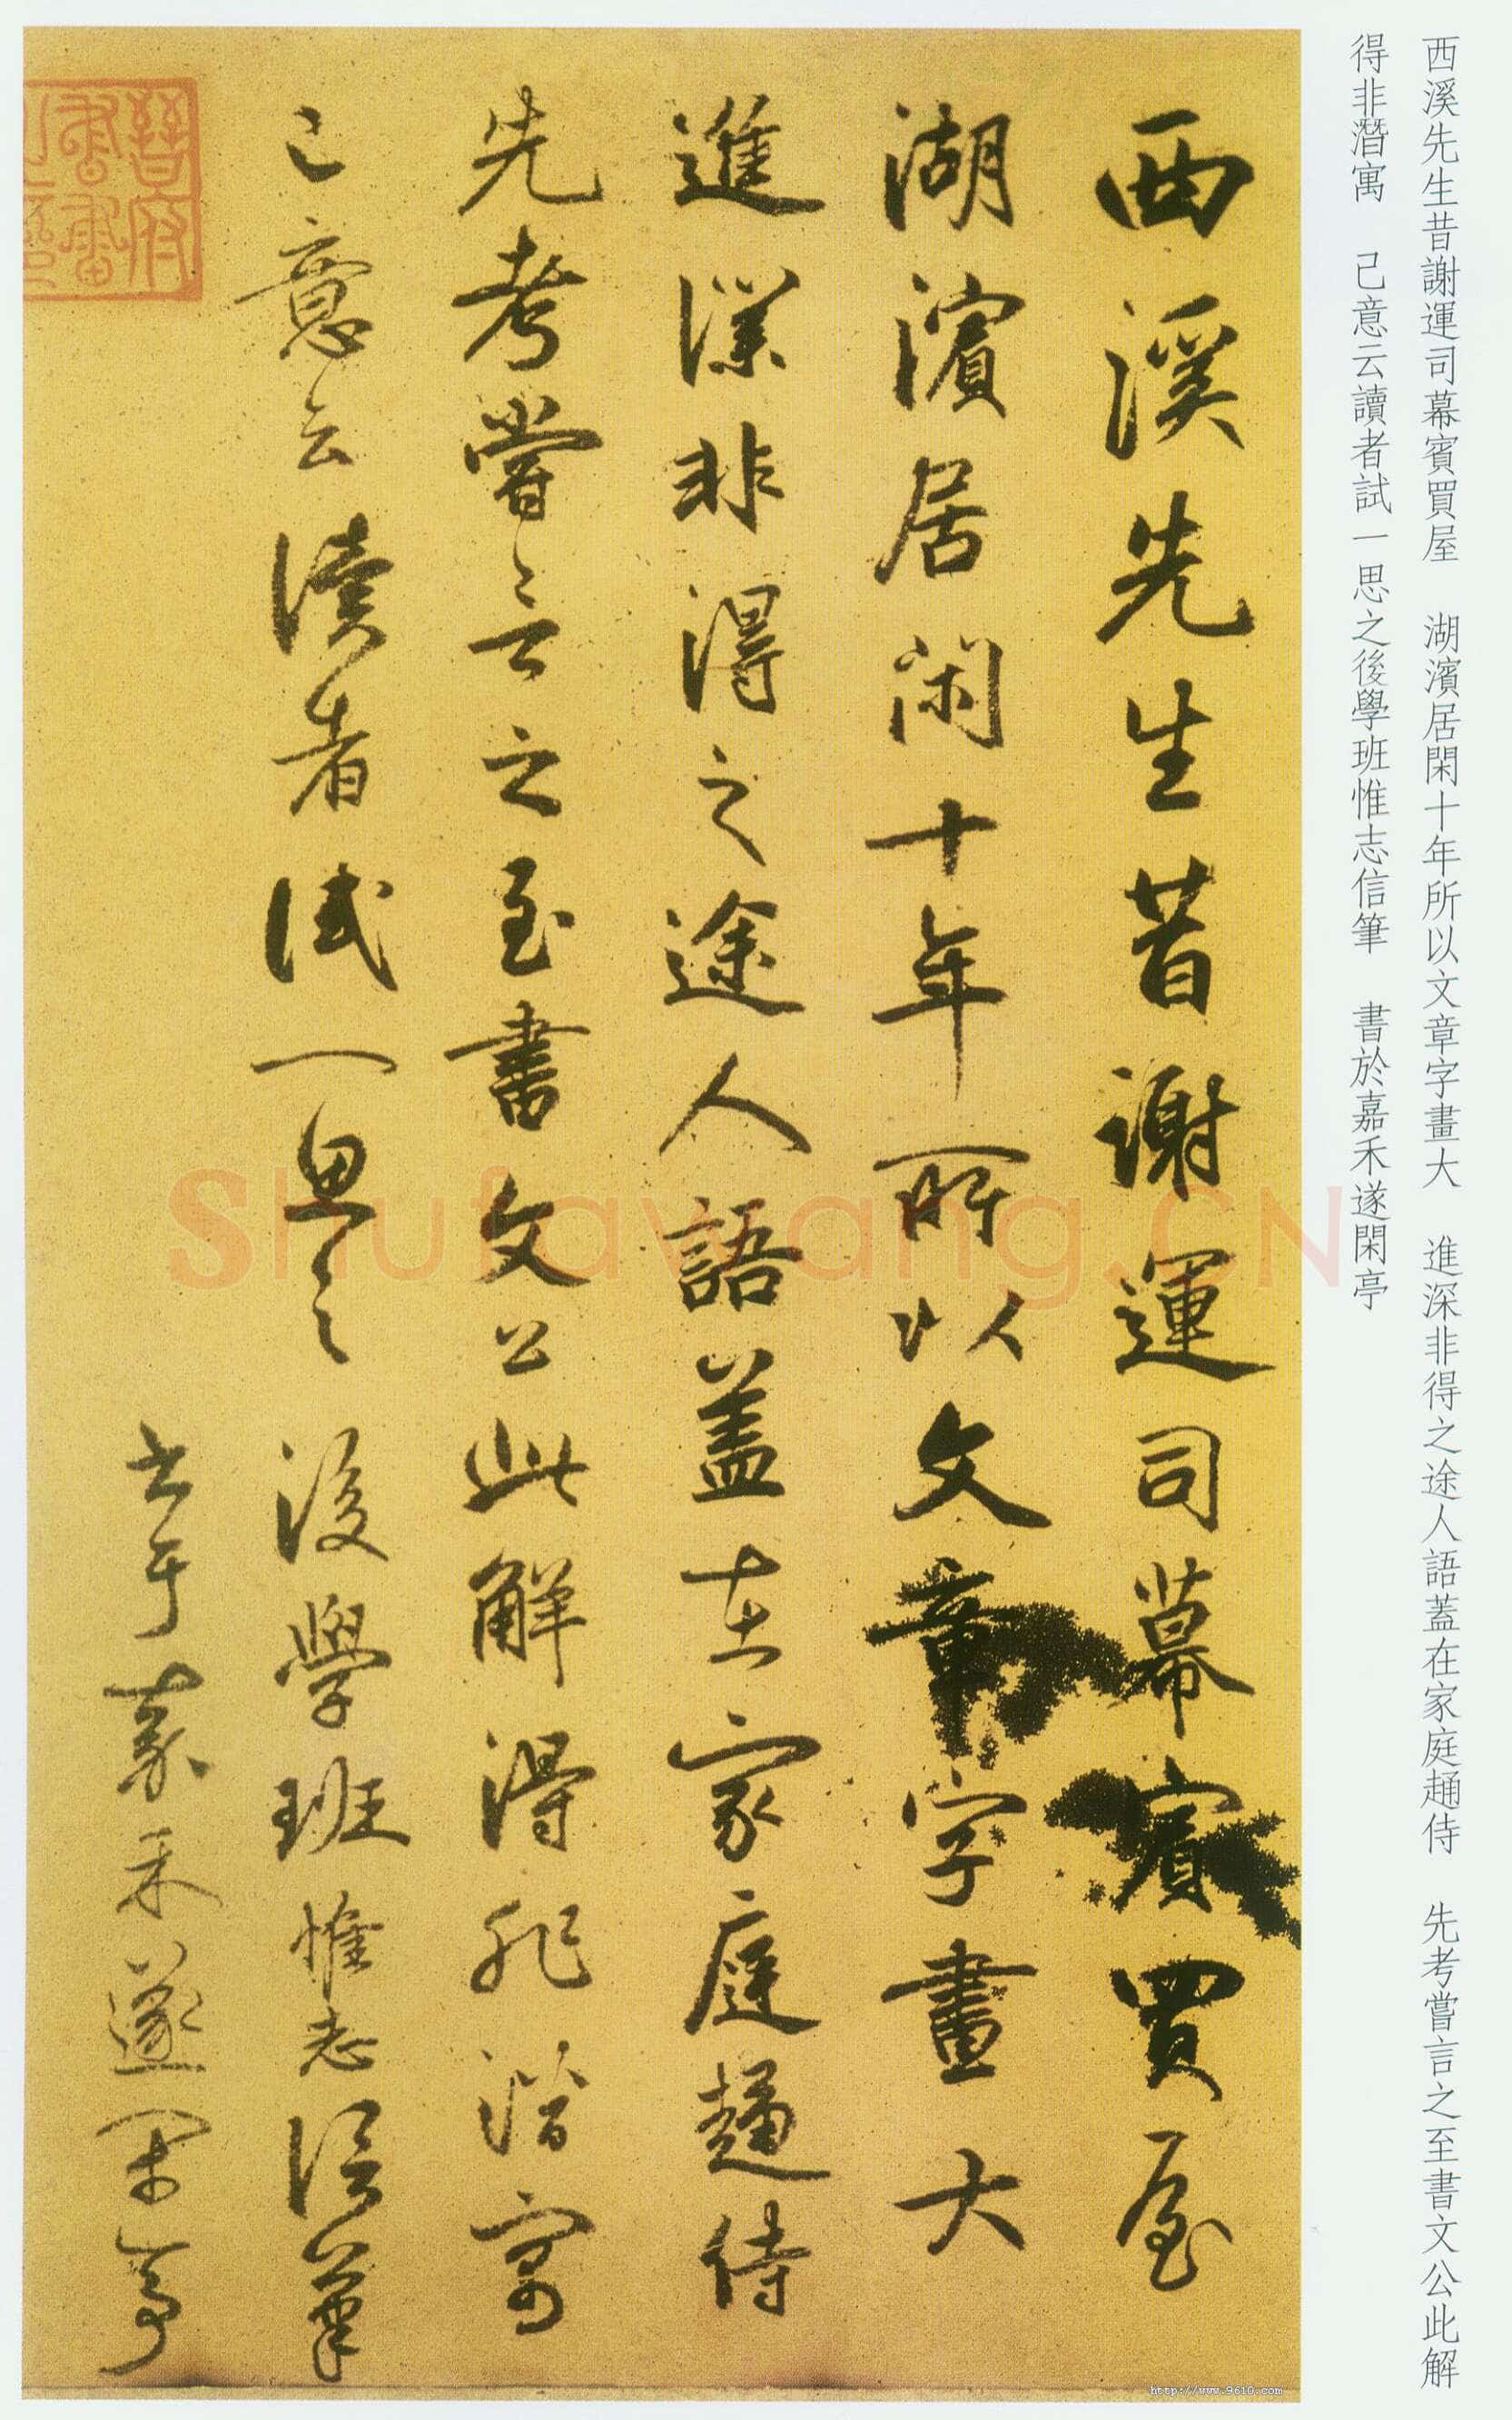 西溪先生昔謝運司幕賓買屋　湖濱居閑十年所以文章字畫大　進深非得之途人語蓋在家庭趨侍　先考嘗言之至書文公此解
得非潛寓　己意云讀者試一思之後學班惟志信筆　書於嘉禾遂閑亭
西溪先生昔謝運司幕賓買屋
湖濱居閑十年所以文章字畫大
進深非得之途人語盖在家庭趨侍
先考嘗言之至書文公此解得非潛寓
己意云讀者試一思之後學班惟志信筆
书于嘉禾遂閑亭
晉府
書畫
Shufawang.CN
http://www.9610.com